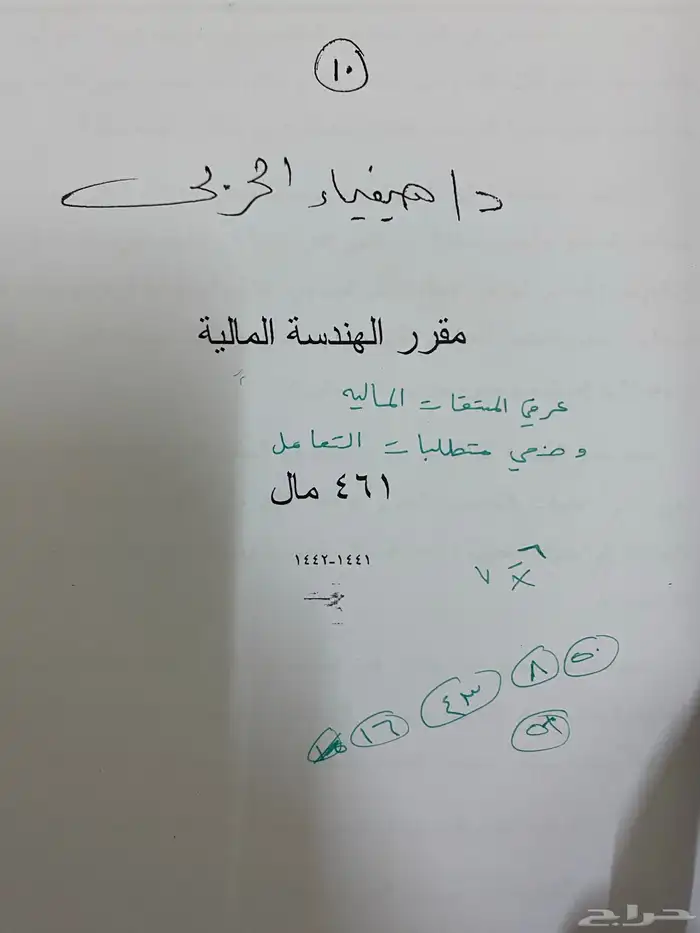 ١٠
د/ هيفياء الحربي
مقرر الهندسة المالية
عرفي المشتقات الماليه
وضحي متطلبات التعامل
٤٦١ مال
١٤٤١-١٤٤٢
٧ x ٦
٥٠ ٨ ٤٣ ١٦
٥٩
حراج